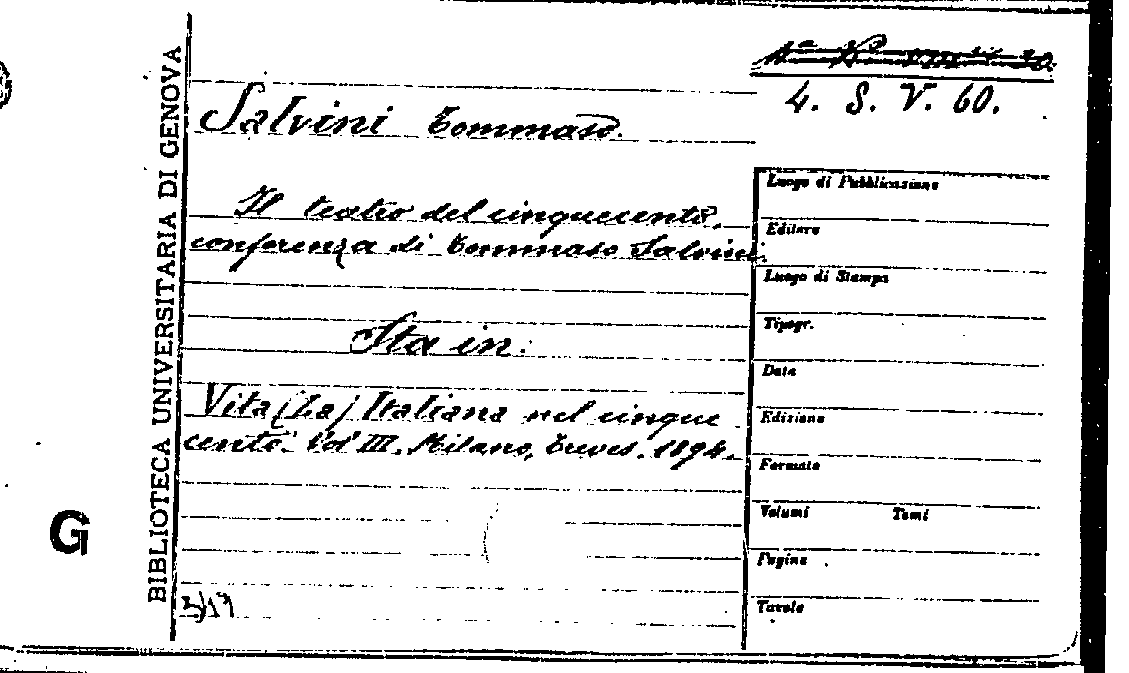 4. S. V. 60.
Salvini Tommaso.
Il teatro del cinquecento,
conferenza di Tommaso Salvini.
Sta in:
Vita (La) Italiana nel cinque
cento. Vol III. Milano, Treves. 1894.
3/19
BIBLIOTECA UNIVERSITARIA DI GENOVA
G
Luogo di Pubblicazione
Editore
Luogo di Stampa
Tipogr.
Data
Edizione
Formato
Volumi Tomi
Pagine
Tavole